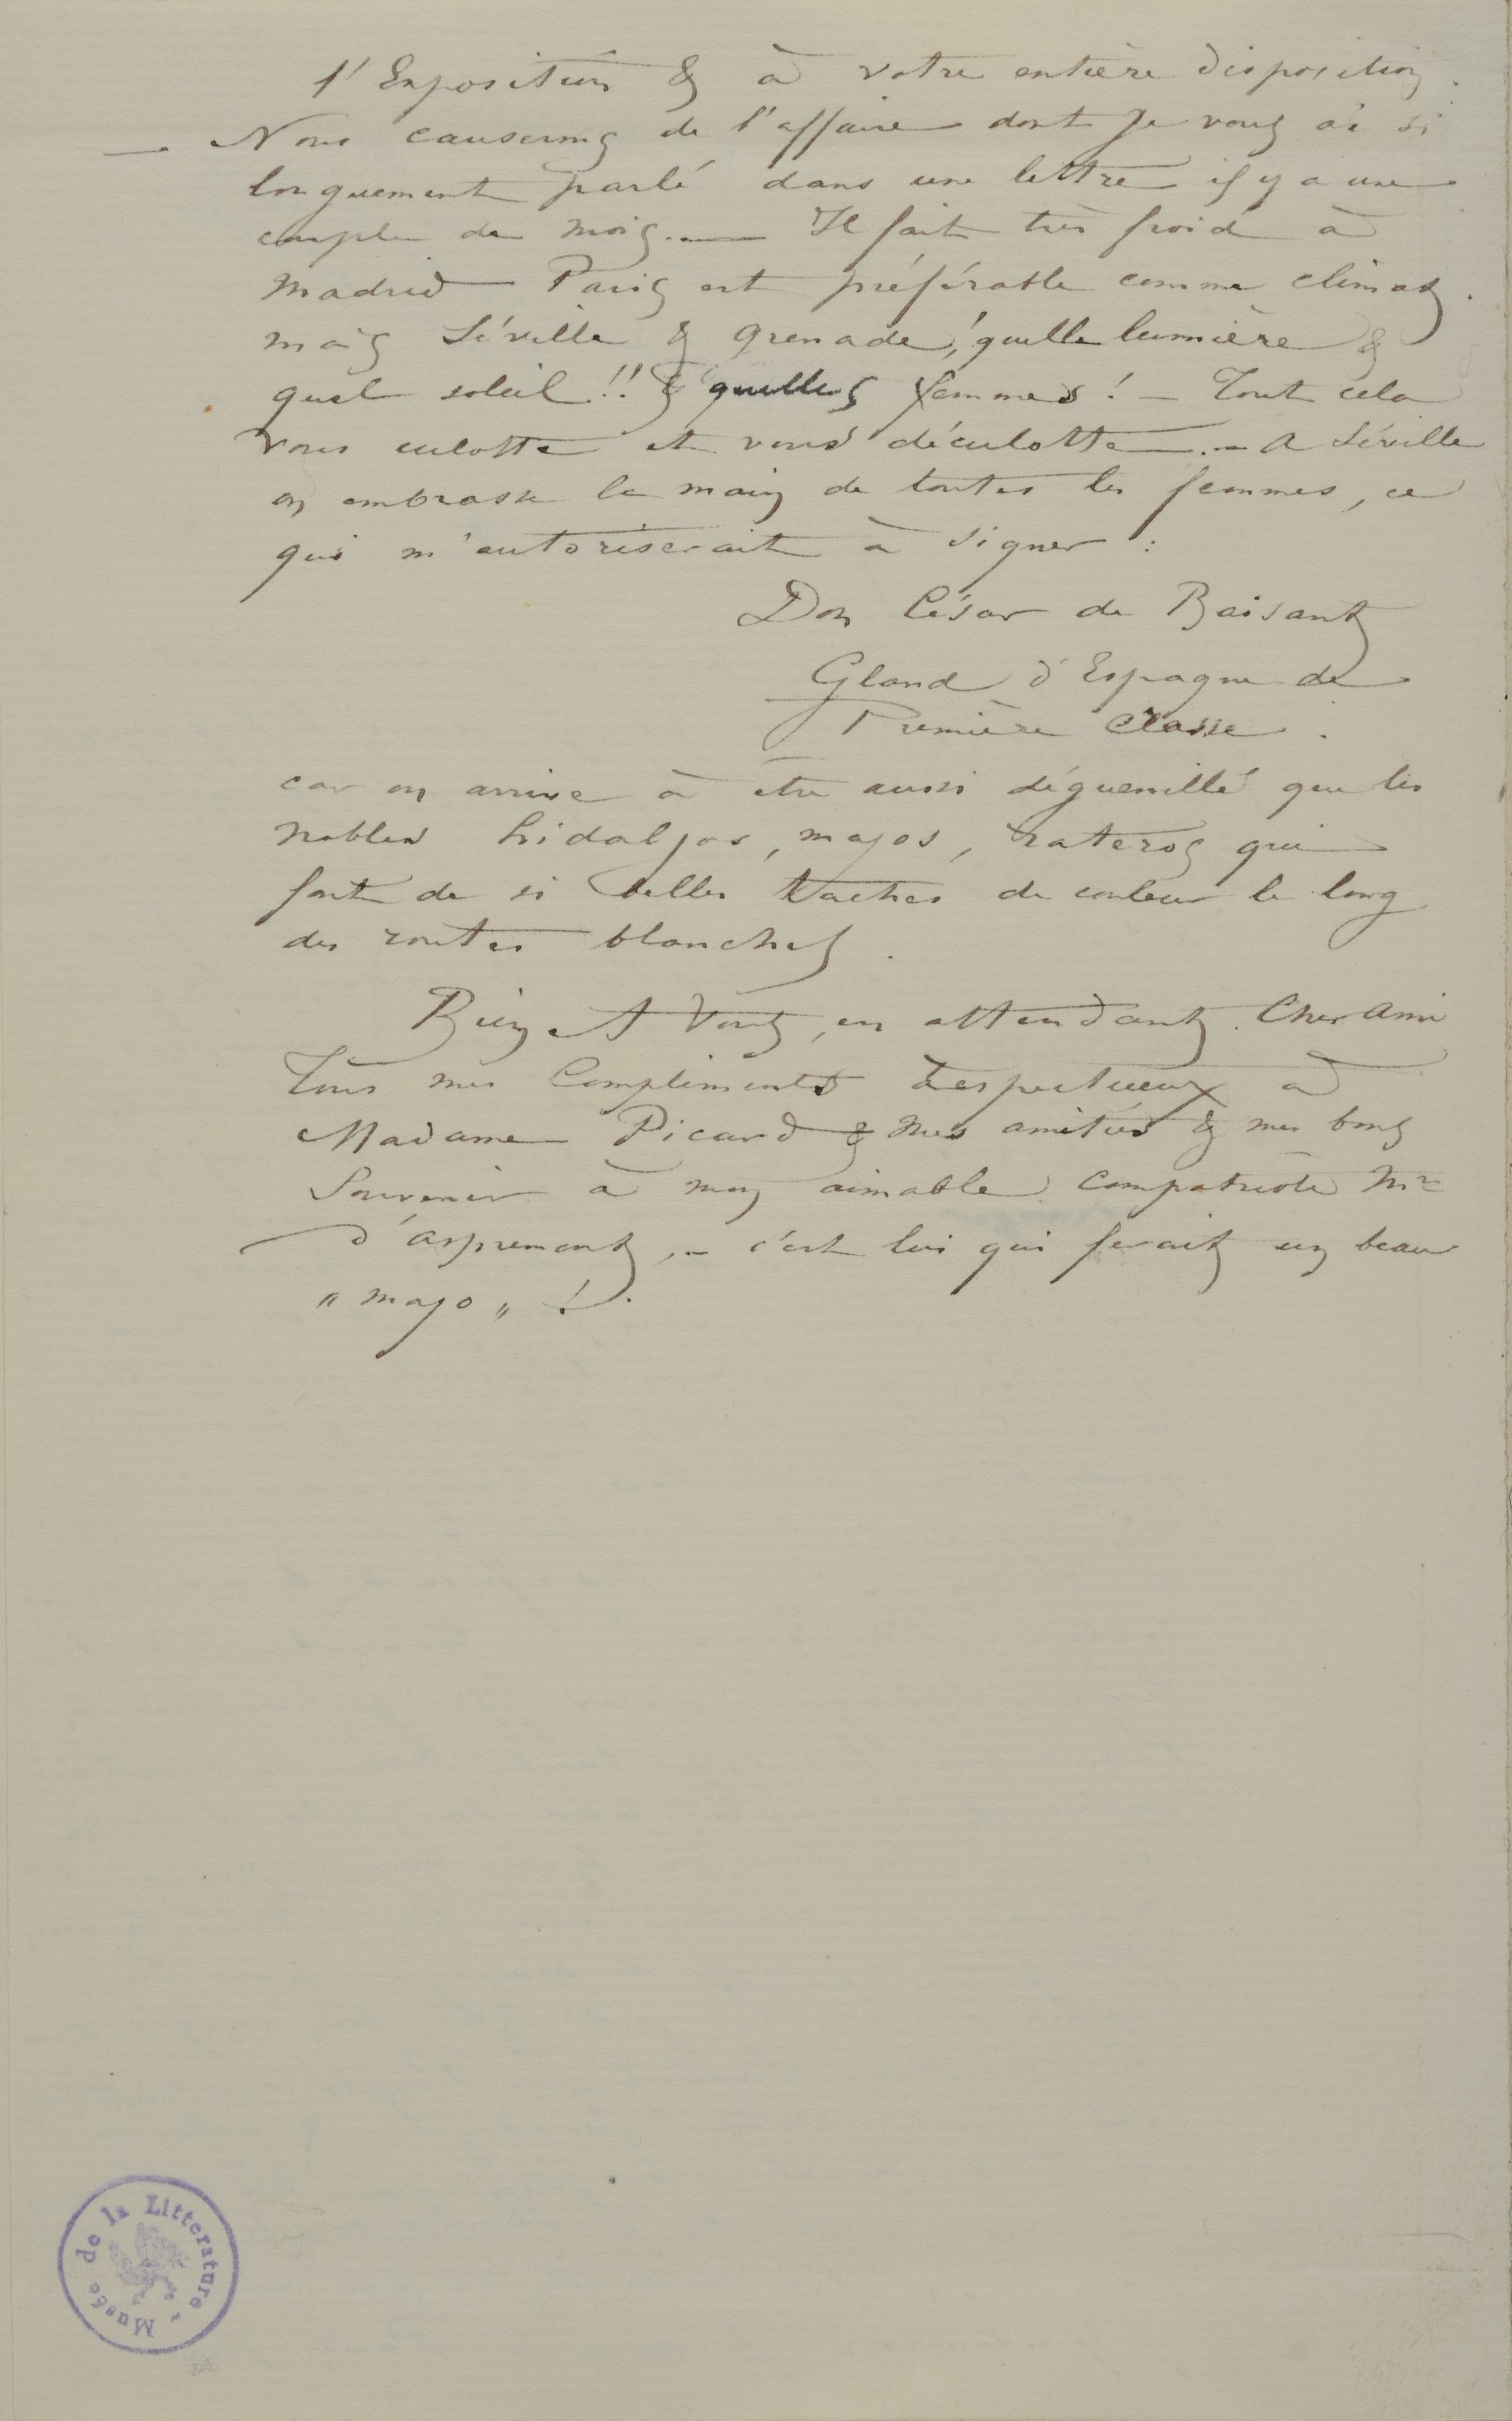 l'Exposition & à votre entière disposition.
— Nous causerons de l'affaire dont je vous ai si
longuement parlé dans une lettre il y a une
couple de mois. — Il fait très froid à
Madrid — Paris est préférable comme climat.
mais Séville & Grenade, ! quelle lumière &
quel soleil !! & quelles femmes ! — Tout cela
vous culotte et vous déculotte. — A Séville
on embrasse la main de toutes les femmes, ce
qui m'autoriserait à signer :
Don César de Baisant
Gland d'Espagne de
Première Classe.
car on arrive à être aussi déguenillé que les
nobles hidalgos, majos, rateros qui
font de si belles taches de couleur le long
des routes blanches.
Bien A Vous, en attendant. Cher Ami
Tous mes Compliments respectueux à
Madame Picard & mes amitiés & mes bons
Souvenir à mon aimable compatriote Mr
d'aspremont, — c'est lui qui ferait un beau
" majo " !.
Musée de la Littérature -